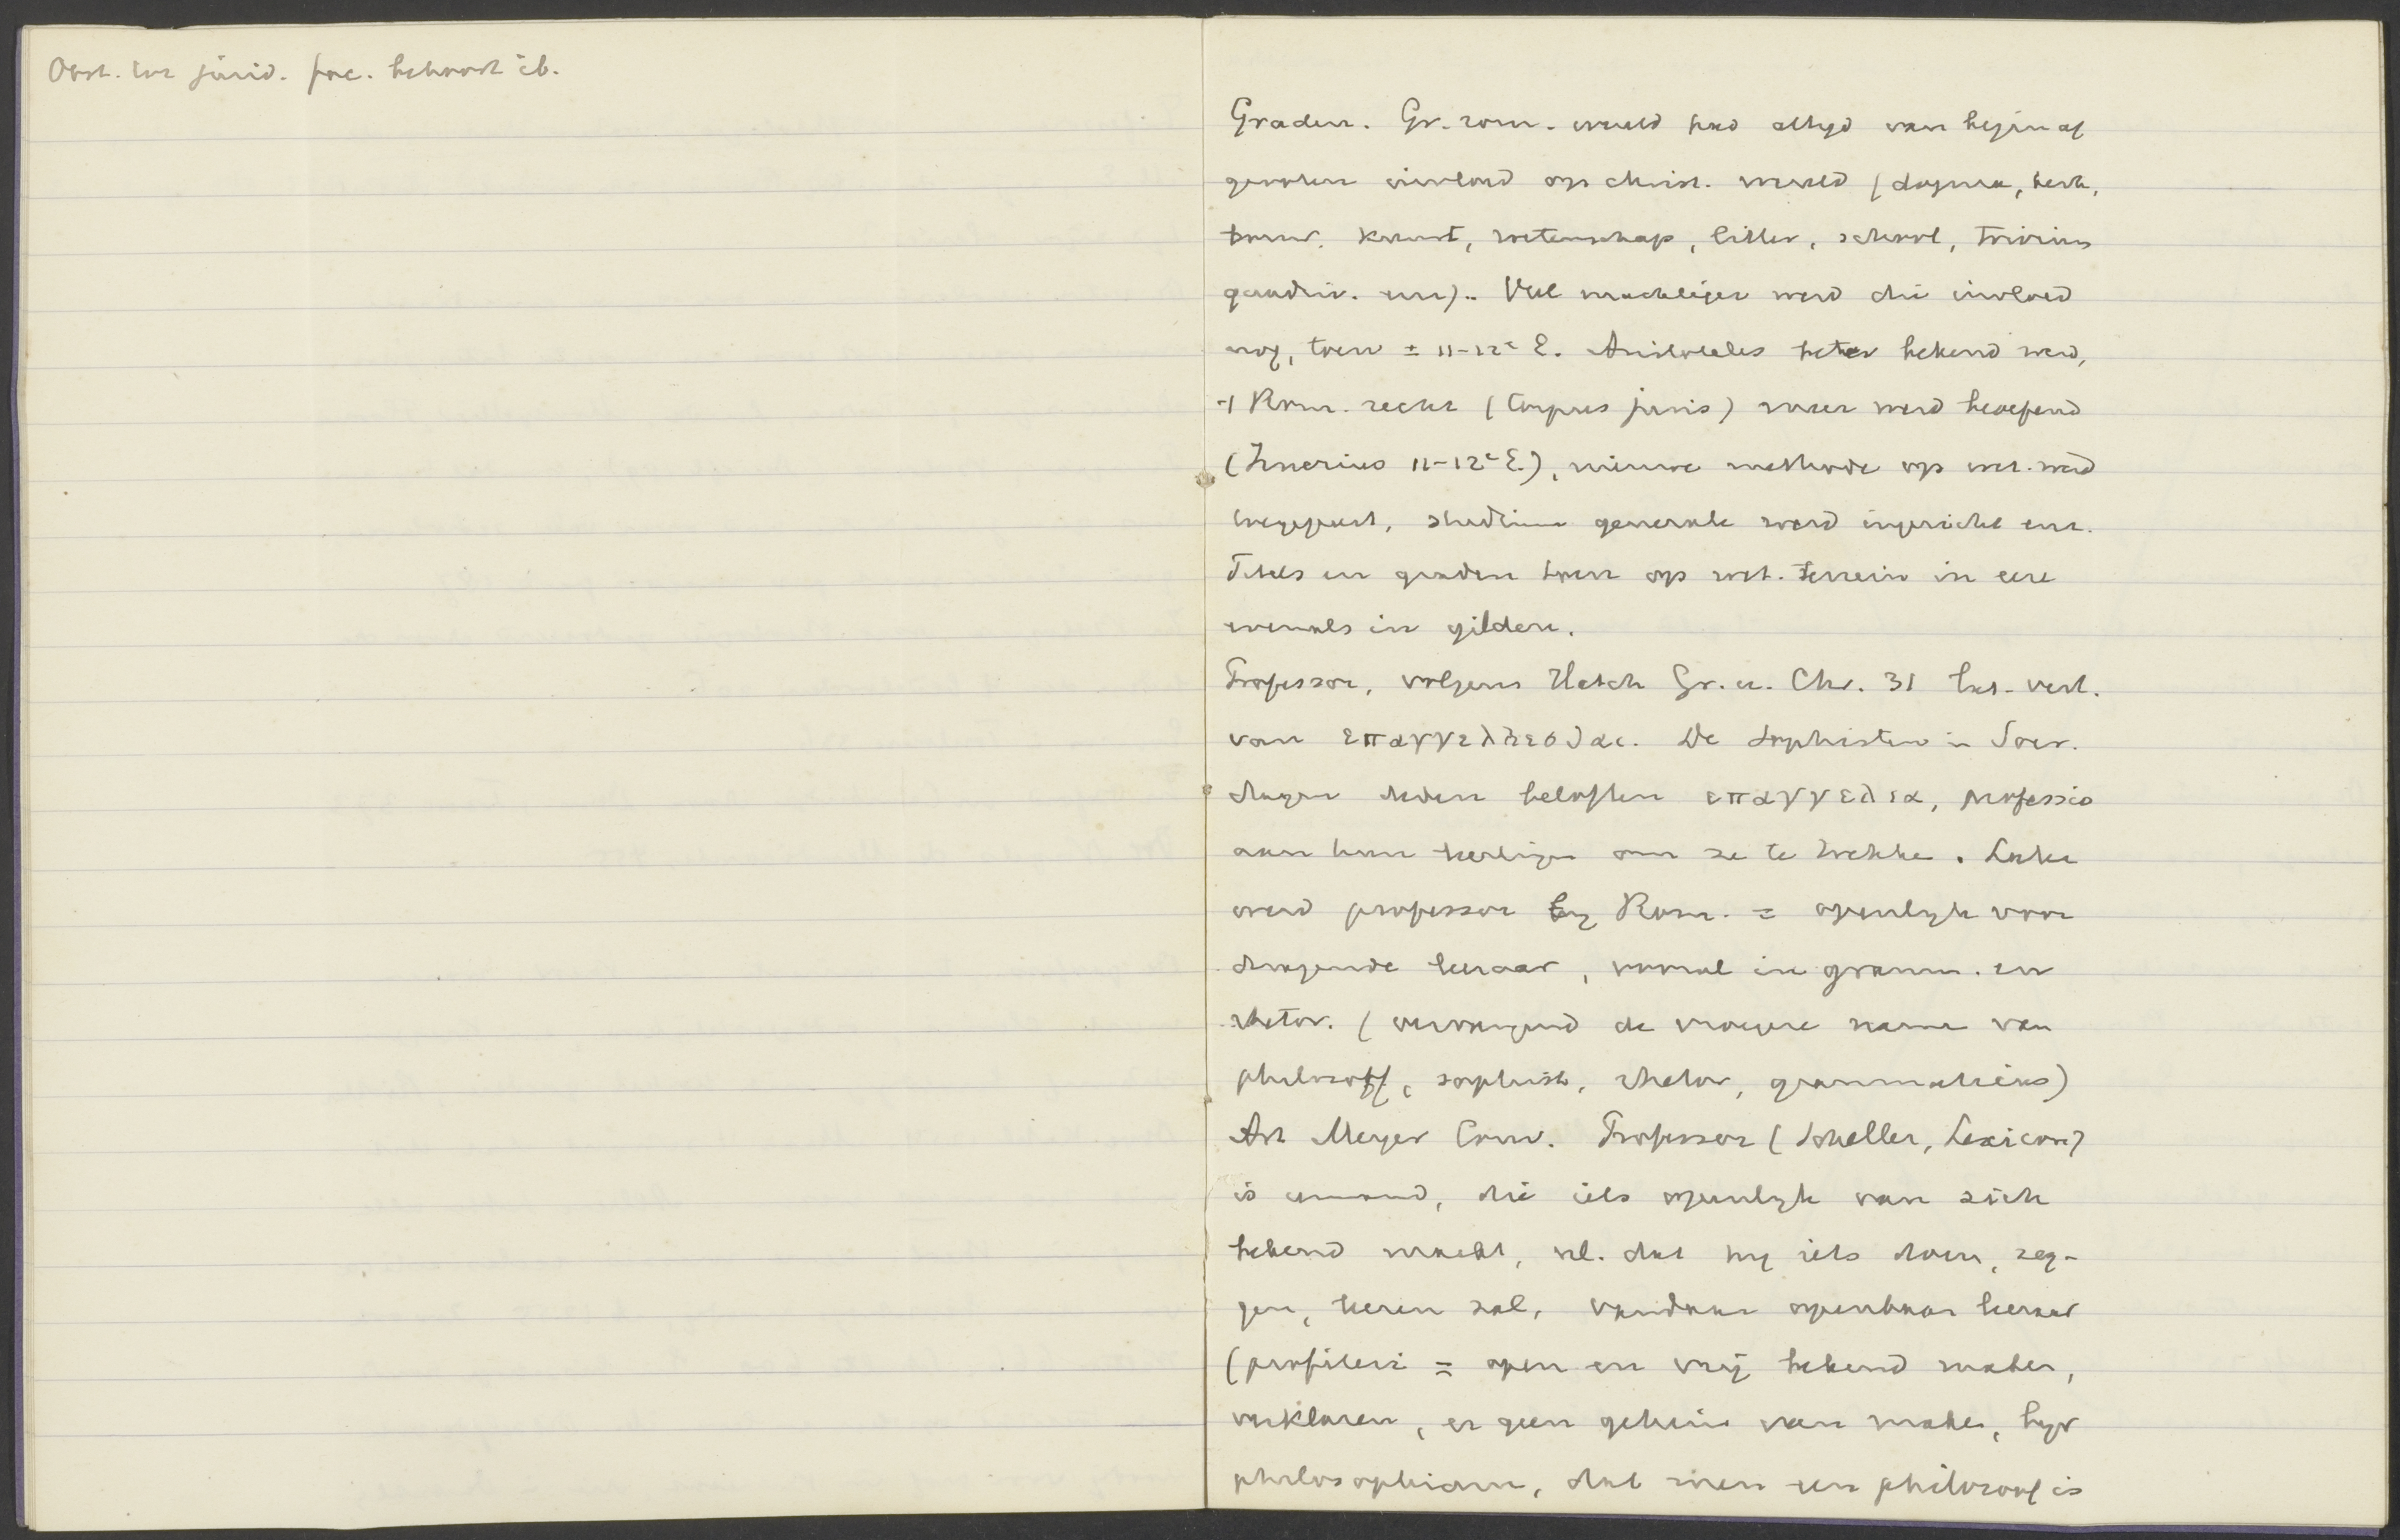 jurid. fac. behoort ib.
Graden. Gr. rom. wereld had altyd van begin af
grooten invloed op christ. wereld (dogma, kerk,
bouw. kunst, wetenschap, litter, school, trivium
quadriv. enz).. Veel machtiger werd die invloed
nog, toen ± 11-12e E. Aristoteles beter bekend werd,
Rom. recht (Corpus juris) meer werd beoefend
(Irnerius 11-12e E.), nieuwe methode op wet. werd
toegepast, studium generale werd ingericht enz.
Titels en graden toen op wet. terrein in eere
evenals in gilden.
Professor, volgens Hatch Gr. u. Chr. 31 lat. vert.
van επαγγελλεσθαι. De sophisten in Socr.
dagen deden beloften επαγγελια, professio
aan hun leerlingen om ze te trekken. Later
werd professor by Rom. = openlyk voor
dragende leeraar, vooral in gramm. en
rhetor. (vervangend de vroegere name van
philosoof, sophist, rhetor, grammaticus)
Art Meyer Conv. Professor (Scheller, Lexicon)
is iemand, die iets openlyk van zich
bekend maakt, nl. dat hy iets doen, zeg-
gen, leeren zal, vandaar openbaar leeraar
(profiteri = open en vrij bekend maken,
verklaren, er geen geheim van maken, bijv
philosophiam, dat men een philosoof is